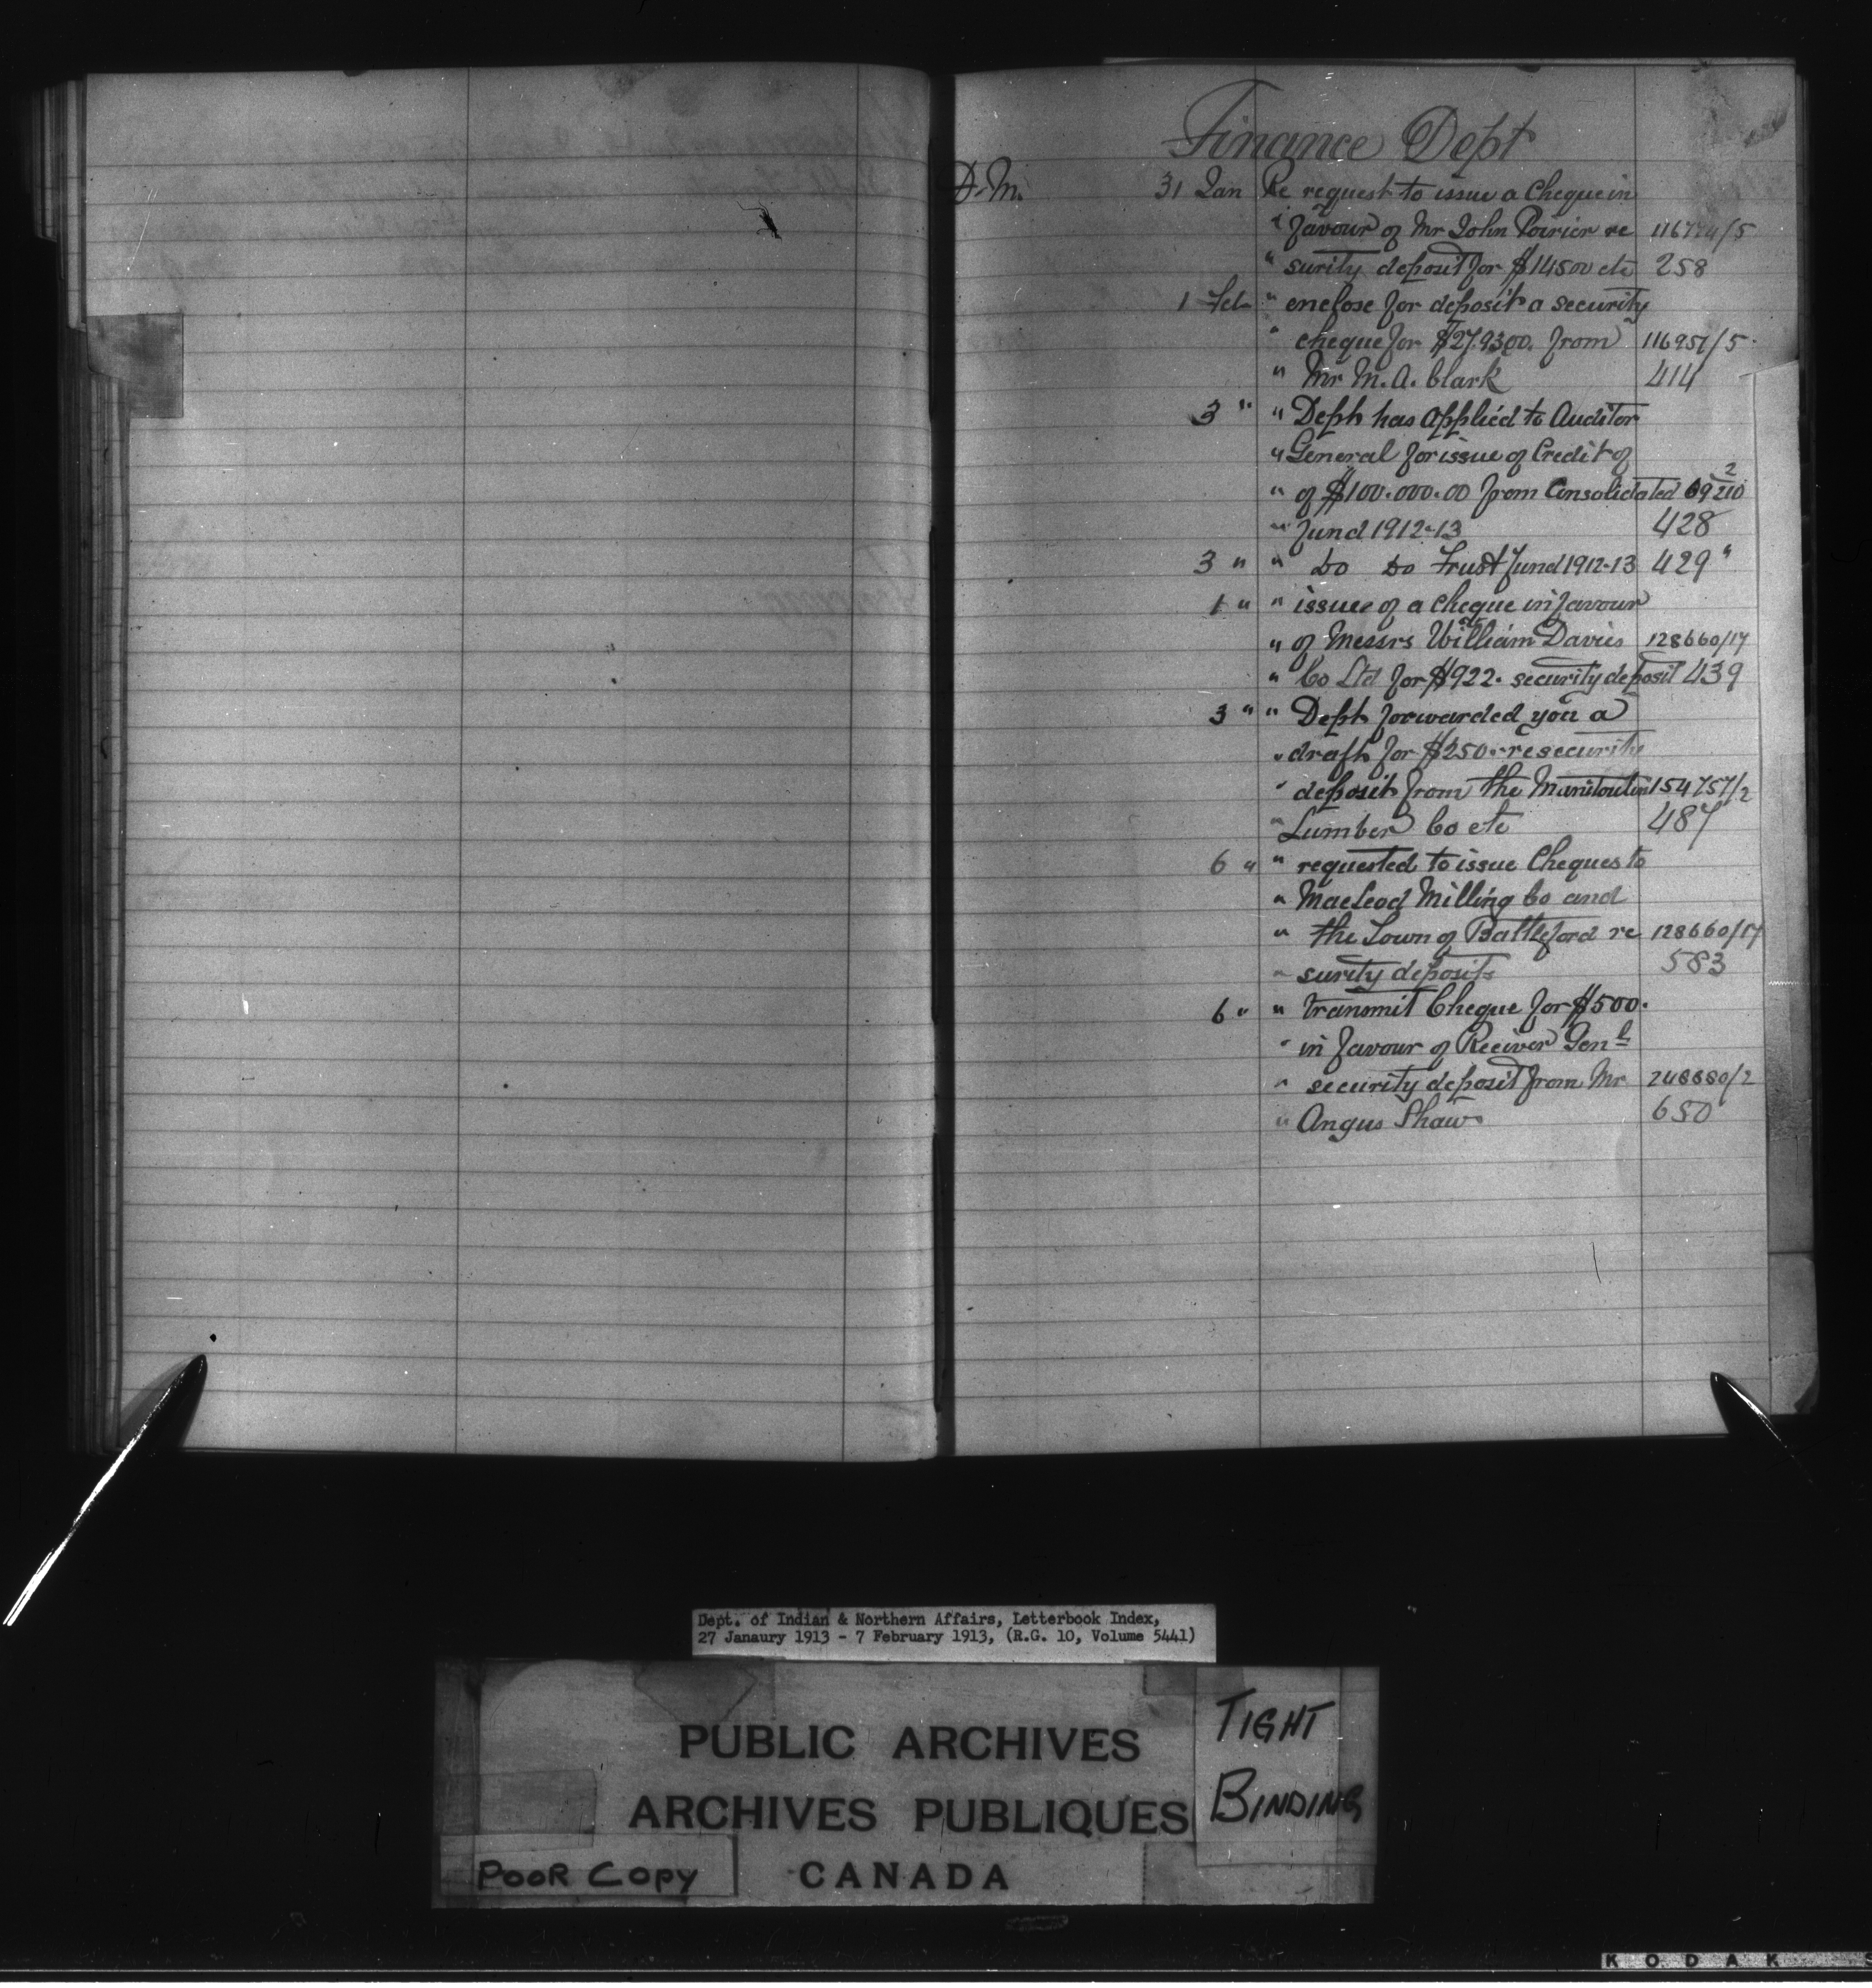 Finance Dept
D.M. 31 Jan Re request to issue a Cheque in
" favour of Mr John Poirier re 116774/5
" surity deposit for $14500 etc 258
1 Feb " enclose for deposit a security
" cheque for $279300. from 116951/5
" Mr M. A. Clark 414
3 " " Dept has applied to Auditor
" General for issue of Credit of
" of $100.000.00 from Consolidated 69210 2
" Fund 1912-13 428
3 " " Do Do Trust Fund 1912-13 429 "
1 " " issue of a cheque in favour
" of Messrs William Davies 128660/17
" Co Ltd for $922. security deposit 439
3 " " Dept forwarded you a
" draft for $250.- re security
" deposit from the Manitoulin 154757/2
" Lumber Co etc 487
6 " " requested to issue Cheques to
" MacLeod Milling Co and
" the Town of Battleford re 128660/17
" surity deposits 583
6 " " transmit Cheque for $500.
" in favour of Reciver Genl
" security deposit from Mr 248880/2
" Angus Shaw 650
Dept. of Indian & Northern Affairs, Letterbook Index,
27 Janaury 1913 - 7 February 1913, (R.G. 10, Volume 5441)
PUBLIC ARCHIVES
ARCHIVES PUBLIQUES
CANADA
TIGHT
BINDING
POOR COPY
KODAK S